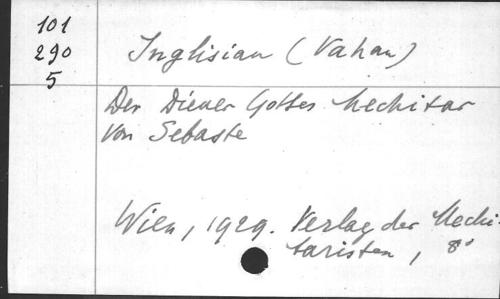 101
290
5
Inglisian (Vahan)
Der Diener Gottes Mechitar
von Sebaste
Wien, 1929. Verlag der Mechi-
taristen, 8°